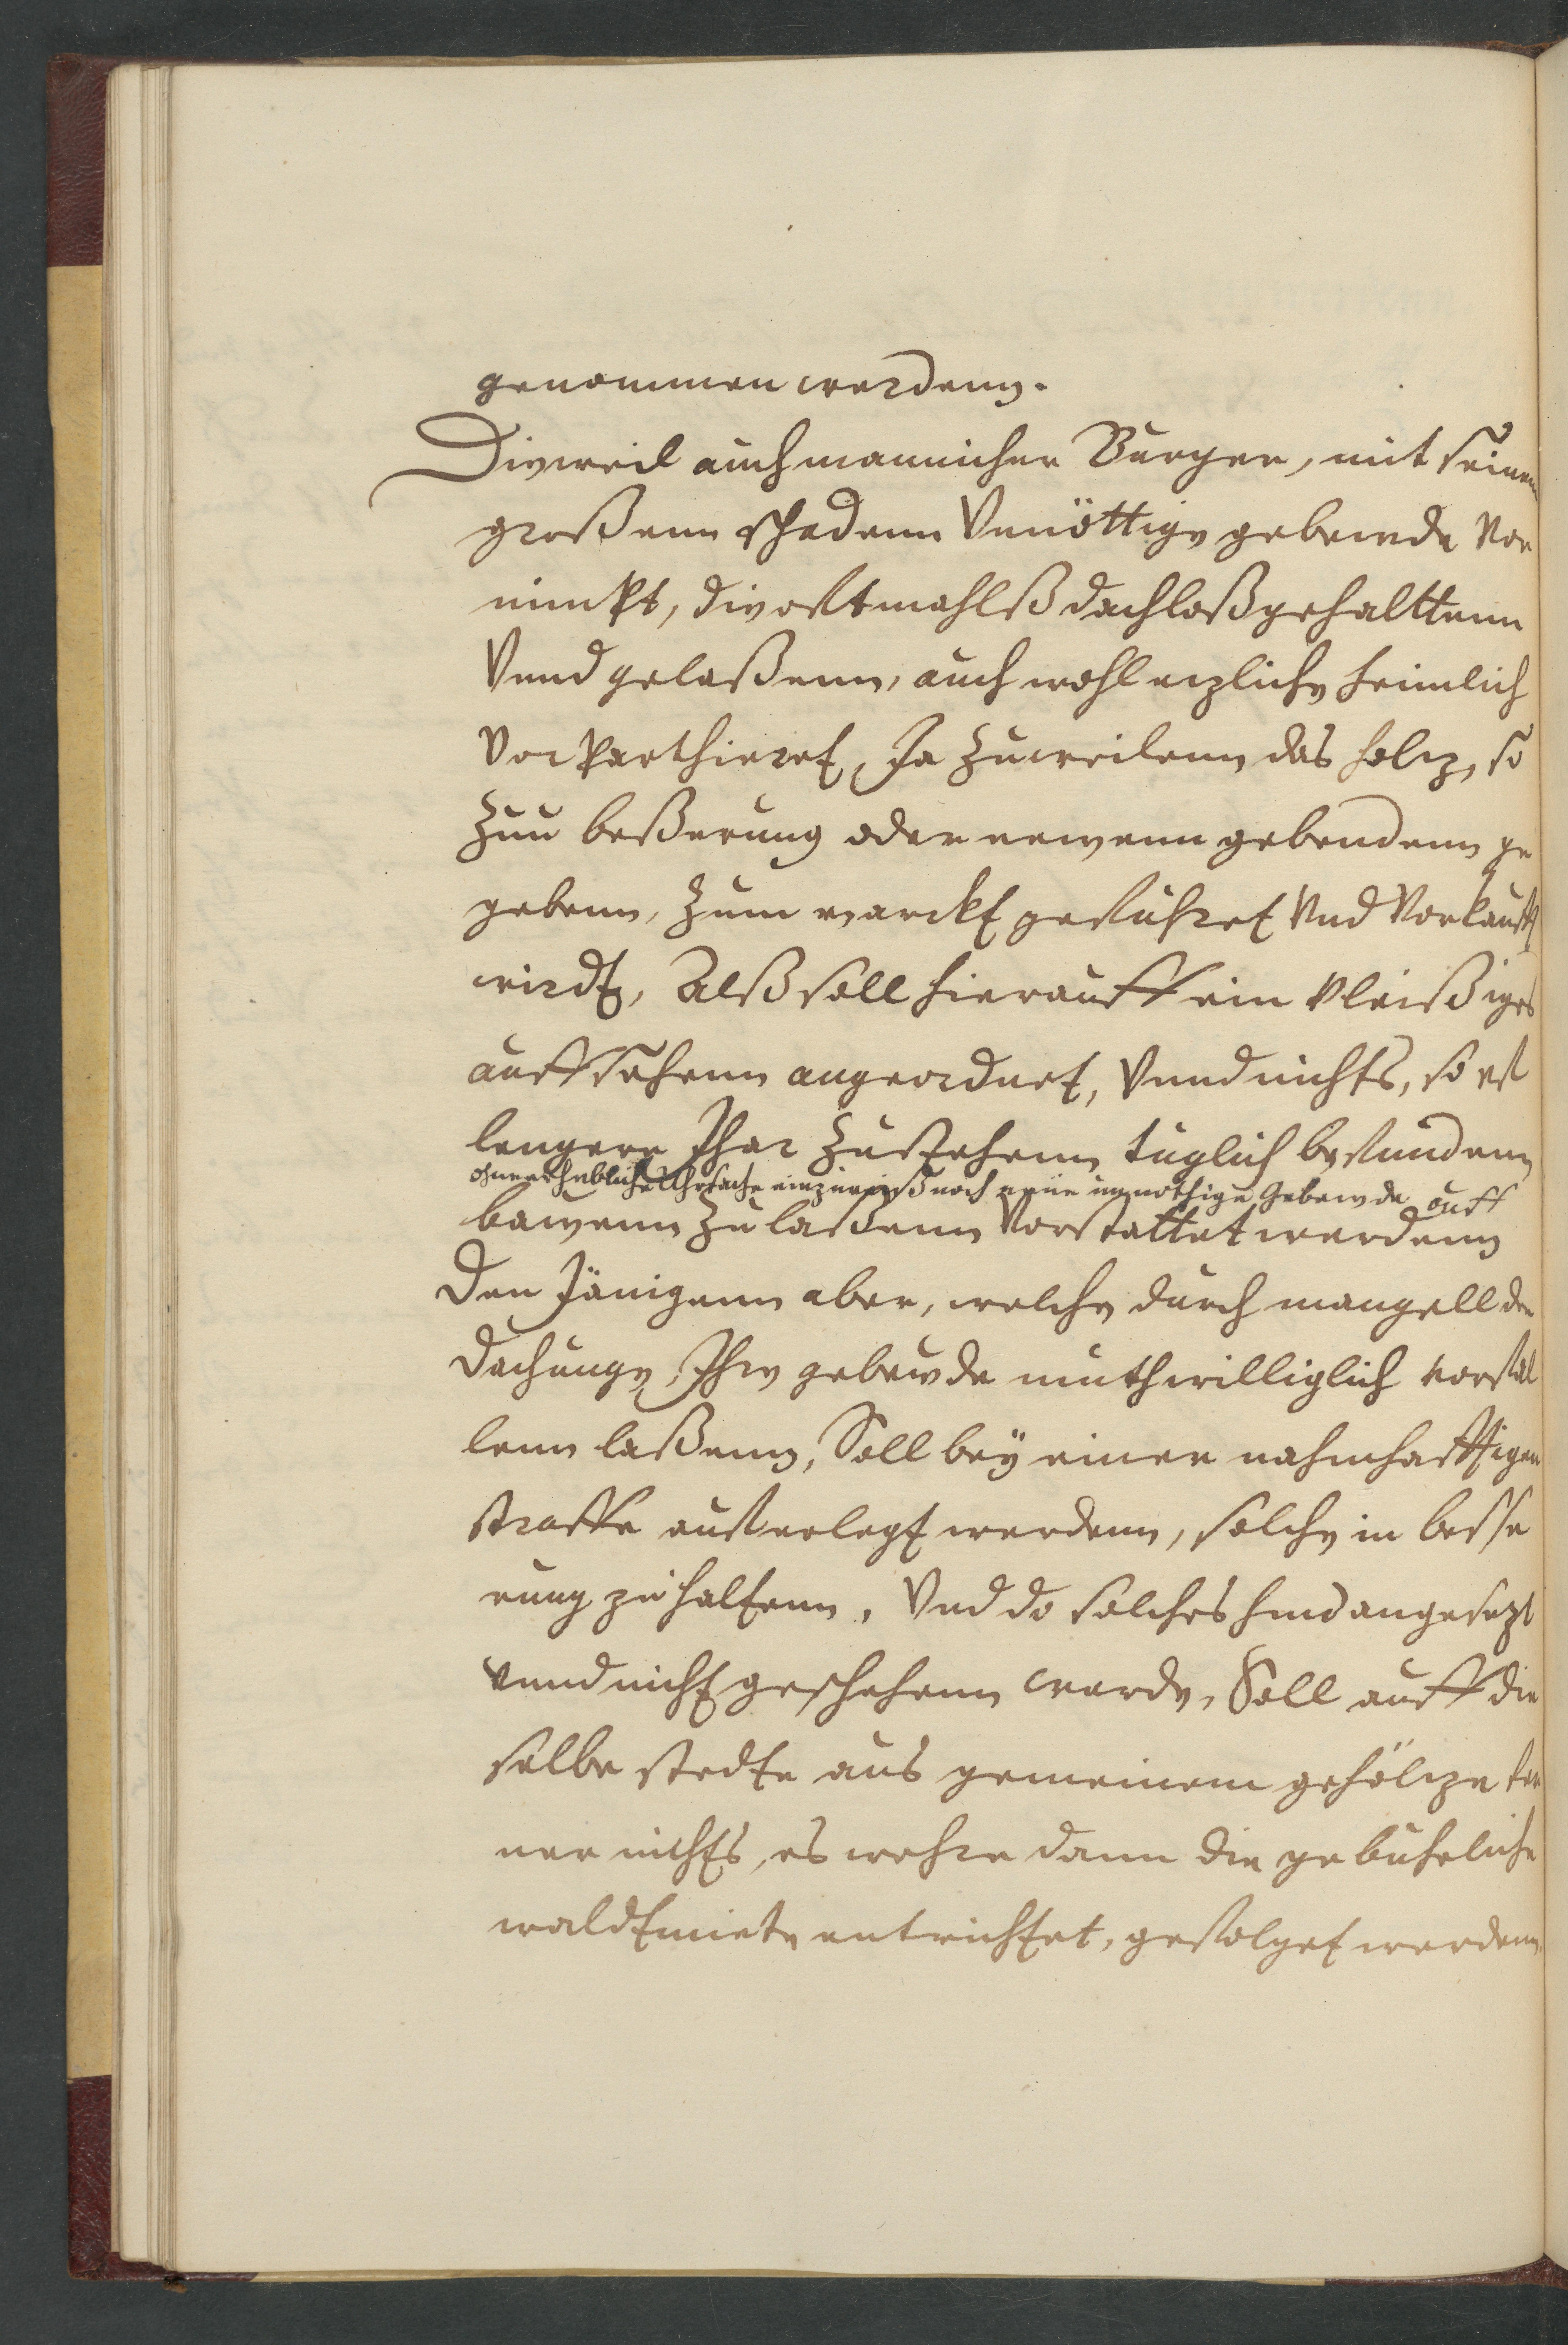 genommen werdenn.
Dieweil auch mannicher Burger, mit seinem
großenn schadenn Vnnöttige gebewde vor
nimbt, die oftmahlß dachloß gehalttenn
Vnnd gelaßenn, auch wohl etzliche heimlich
Vorparthieret, Ja Zuweilenn das holtz, so
Zuu beßerung oder newenn gebeudenn ge
gebenn, Zum marckt gefuhret Vnd Vorkaufft
wirdt, Alß soll hierauff ein vleißiges
auffsehenn angeordnet, Vnnd nichts, so vf
lengere Jhar Zustehenn tuglich befundenn
ohne erhebliche Uhrsache einzureiß noch neüe unnothige Gebewde auff
bawenn Zu laßenn Vorstattet werdenn
Den Jänigenn aber, welche durch mangell der
dachunge, Ihre gebewde muthwilliglich vorfal
lenn laßenn, Soll bey einer nahmhafftigen
straffe auferlegt werdenn, solche in besse
rung zu haltenn, Vnd do solches hindangesetzt
vnnd nicht geschehenn werde, Soll auff die
selbe stedte aus gemeinem gehöltze fer
ner nichts, es wehre dann die gebuhrliche
waldtmiete entrichtet, gefolget werdenn.